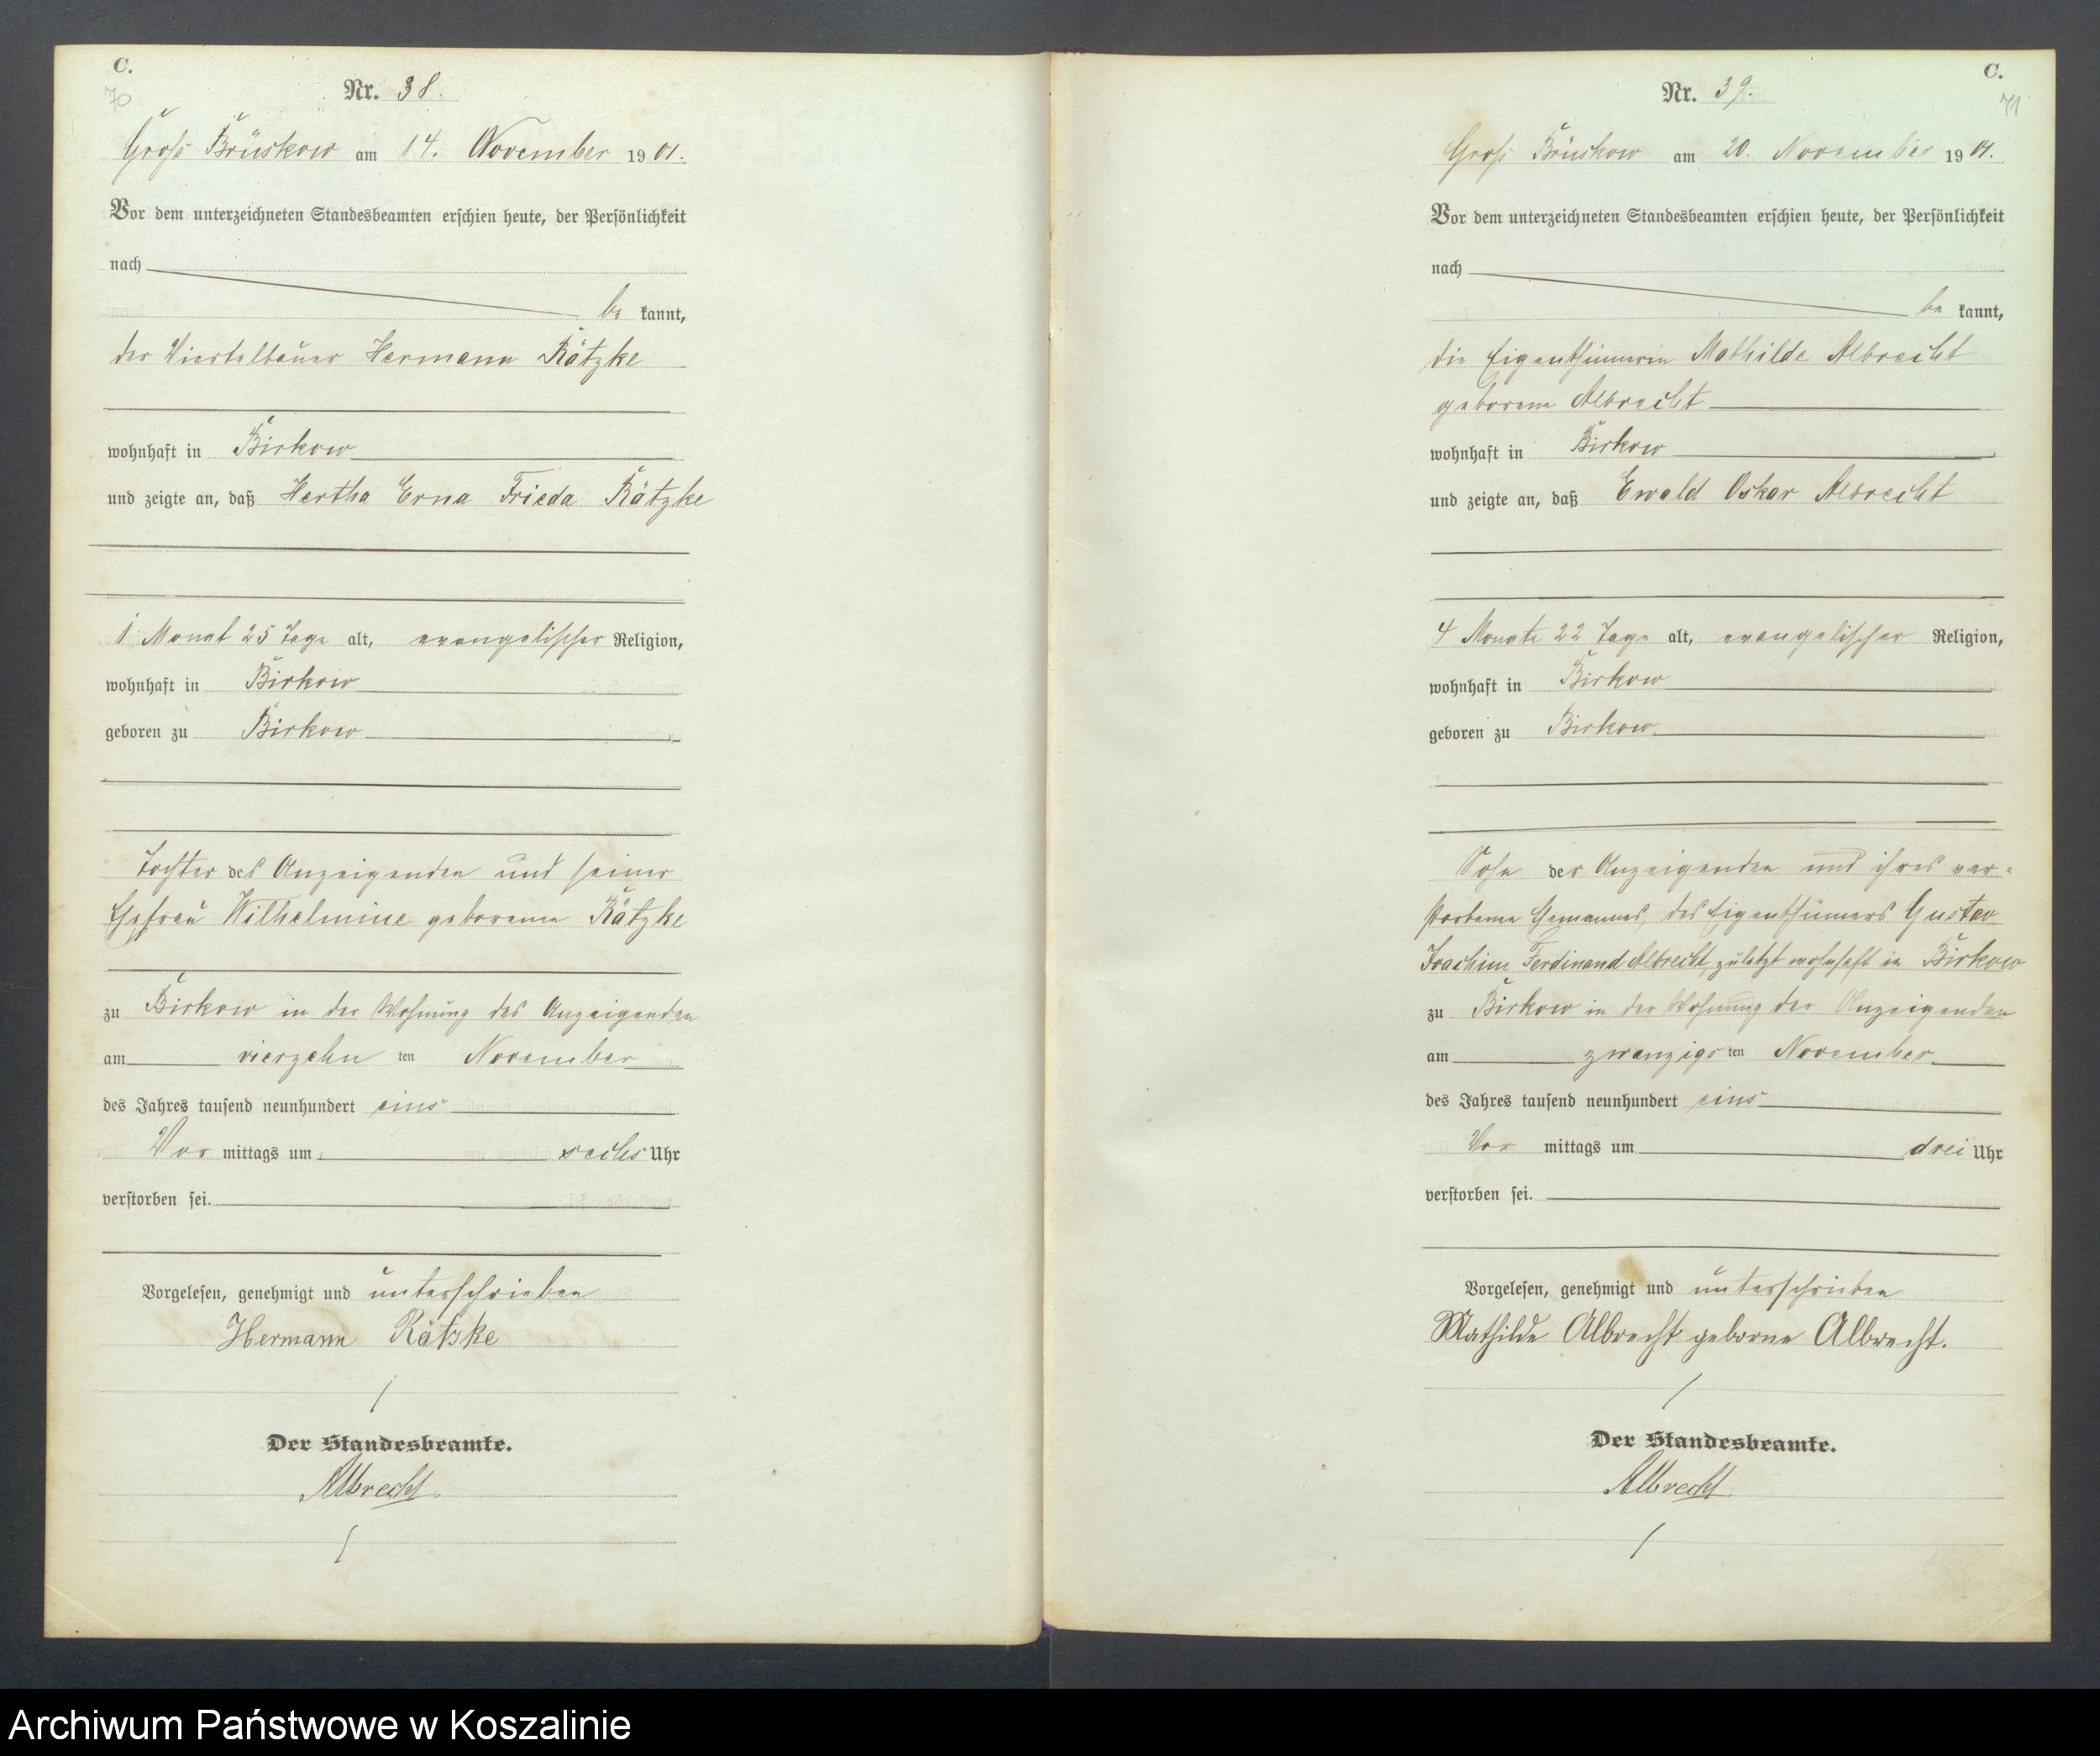 C.
70
Nr. 38.
Groß Brüskow am 14. November 1901.
Vor dem unterzeichneten Standesbeamten erschien heute, der Persönlichkeit
nach
be kannt,
der Viertelbauer Hermann Rätzke
wohnhaft in Birkow
und zeigte an, daß Hertha Erna Frieda Rätzke
1 Monat 25 Tage alt, evangelischer Religion,
wohnhaft in Birkow
geboren zu Birkow
Tochter des Anzeigenden und seiner
Ehefrau Wilhelmine geborenen Rätzke
zu Birkow in der Wohnung des Anzeigenden
am vierzehn ten November
des Jahres tausend neunhundert eins
Vor mittags um sechs Uhr
verstorben sei.
Vorgelesen, genehmigt und unterschrieben
Hermann Rätzke
Der Standesbeamte.
Albrecht
C.
71
Nr. 39.
Groß Brüskow am 20. November 1901.
Vor dem unterzeichneten Standesbeamten erschien heute, der Persönlichkeit
nach
be kannt,
die Eigenthümerin Mathilde Albrecht
geborene Albrecht
wohnhaft in Birkow
und zeigte an, daß Ewald Oskar Albrecht
4 Monate 22 Tage alt, evangelischer Religion,
wohnhaft in Birkow
geboren zu Birkow
Sohn der Anzeigenden und ihres ver-
storbenen Ehemannes, des Eigenthümers Gustav
Joachim Ferdinand Albrecht, zuletzt wohnhaft in Birkow
zu Birkow in der Wohnung der Anzeigenden
am zwanzigs ten November
des Jahres tausend neunhundert eins
Vor mittags um drei Uhr
verstorben sei.
Vorgelesen, genehmigt und unterschrieben
Mathilde Albrecht geborne Albrecht.
Der Standesbeamte.
Albrecht
Archiwum Państwowe w Koszalinie